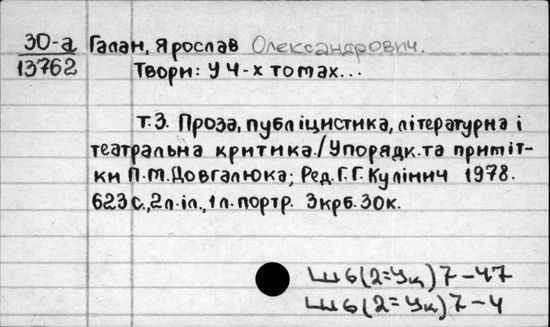 30-а Галан, Ярослав Олександрович.
13762 Твори: У 4-х томах...
т.3. Проза, публіцистика, літературна і
театральна критика./Упорядк. та приміт-
ки П.М.Довгалюка; Ред. Г.Г.Кулінич 1978.
623 с., 2л.іл., 1л. портр. 3крб. 30к.
Ш6(2=Ук)7-47
Ш6(2=Ук)7-4